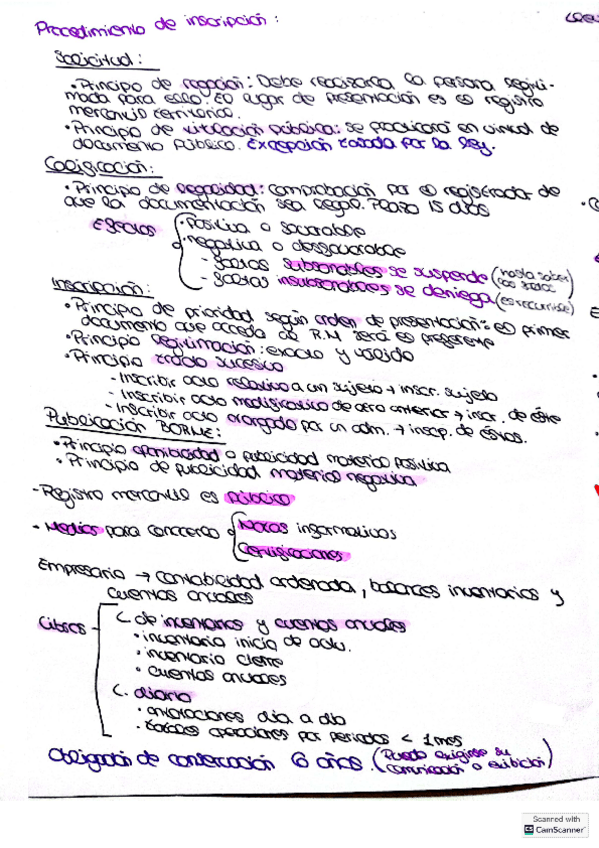 Procedimiento de inscripción:
Solicitud:
• Principio de rogación: Debe realizarla la persona legiti-
mada para ello. El lugar de presentación es el registro
mercantil territorial.
• Principio de titulación pública: se practicará en virtud de
documento público. Excepción tasada por la ley.
Calificación:
• Principio de legalidad: comprobación por el registrador de
que la documentación sea legal. Plazo 15 días
Efectos
Positiva o favorable
• negativa o desfavorable
- faltas subsanables se suspende (hasta
- faltas insubsanables se deniega (es recurrible)
Inscripción:
• Principio de prioridad según orden de presentación: el primer
documento que acceda al R.M será el preferente
• Principio legitimación: exacto y válido
• Principio tracto sucesivo
- Inscribir acto relativo a un sujeto → inscr. sujeto
- Inscribir acto modificativo de otro anterior → inscr. de éste
- Inscribir acto otorgado por un adm. → inscp. de éstos.
Publicación BORME:
• Principio oponibilidad o publicidad material positiva
• Principio de publicidad material negativa
- Registro mercantil es público
- Medios para conocerlo
Notas informativas
Certificaciones
Empresario → contabilidad ordenada, balances inventarios y
cuentas anuales
Libros
L. de inventarios y cuentas anuales
• inventario inicio de activ.
• inventario cierre
• cuentas anuales
L. diario
• anotaciones día a día
• totales operaciones por periodos < 1 mes
Obligación de conservación 6 años. (Puede exigirse su
comunicación o exhibición)
Scanned with
CS CamScanner